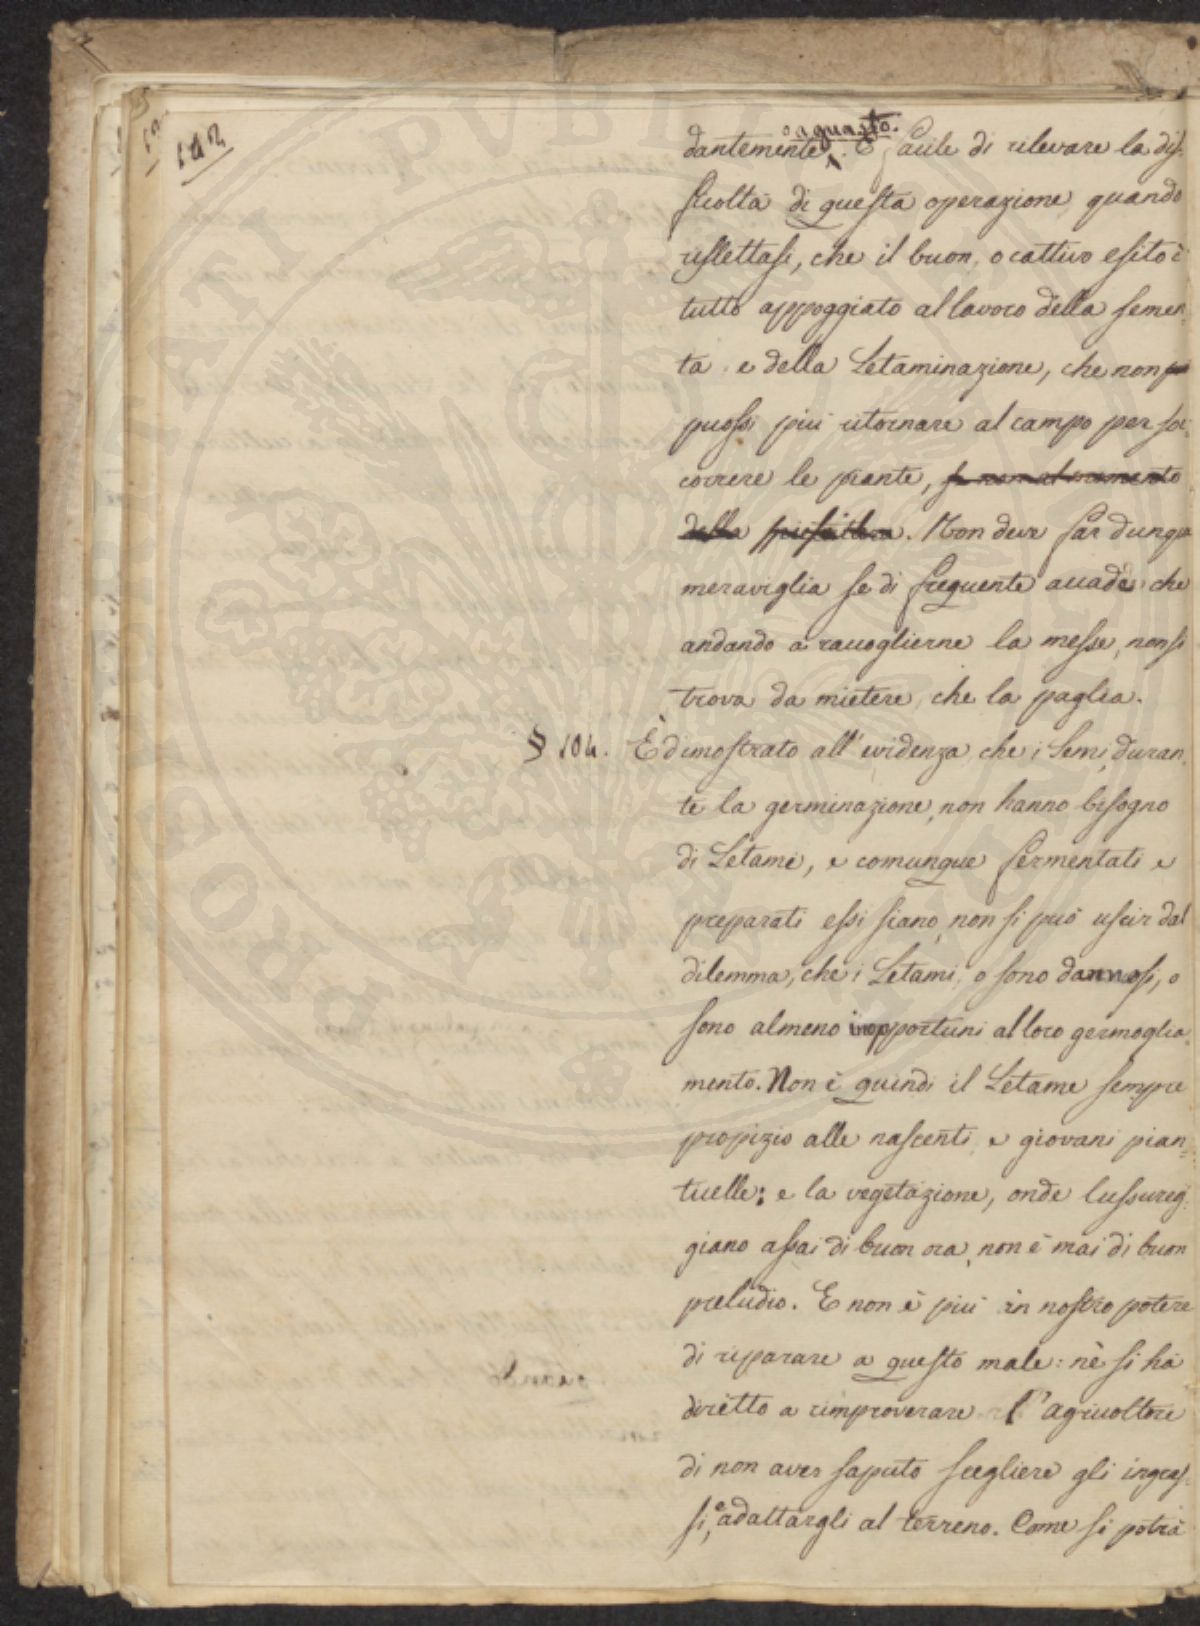 142
o a guasto.
dantemente. È facile di rilevare la dif-
ficoltà di questa operazione, quando
riflettasi, che il buon, o cattivo esito è
tutto appoggiato al lavoro della semen-
ta e della Letaminazione, che non
puossi più ritornare al campo per soc-
correre le piante, se non al momento
della. Non deve far dunque
meraviglia se di frequente accade che
andando a raccoglierne la messe, non si
trova da mietere, che la paglia.
§ 104. È dimostrato all'evidenza, che i semi, duran-
te la germinazione, non hanno bisogno
di Letame, e comunque fermentati e
preparati essi siano, non si può uscir dal
dilemma, che i Letami, o sono dannosi, o
sono almeno inopportuni al loro germoglia-
mento. Non è quindi il Letame sempre
propizio alle nascenti, e giovani pian-
tuelle: e la vegetazione, onde lussureg-
giano assai di buon ora, non è mai di buon
preludio. E non è più in nostro potere
di riparare a questo male: nè si ha
diretto a rimproverare l'agricoltore
di non aver saputo scegliere gli ingras-
si, e adattargli al terreno. Come si potrà